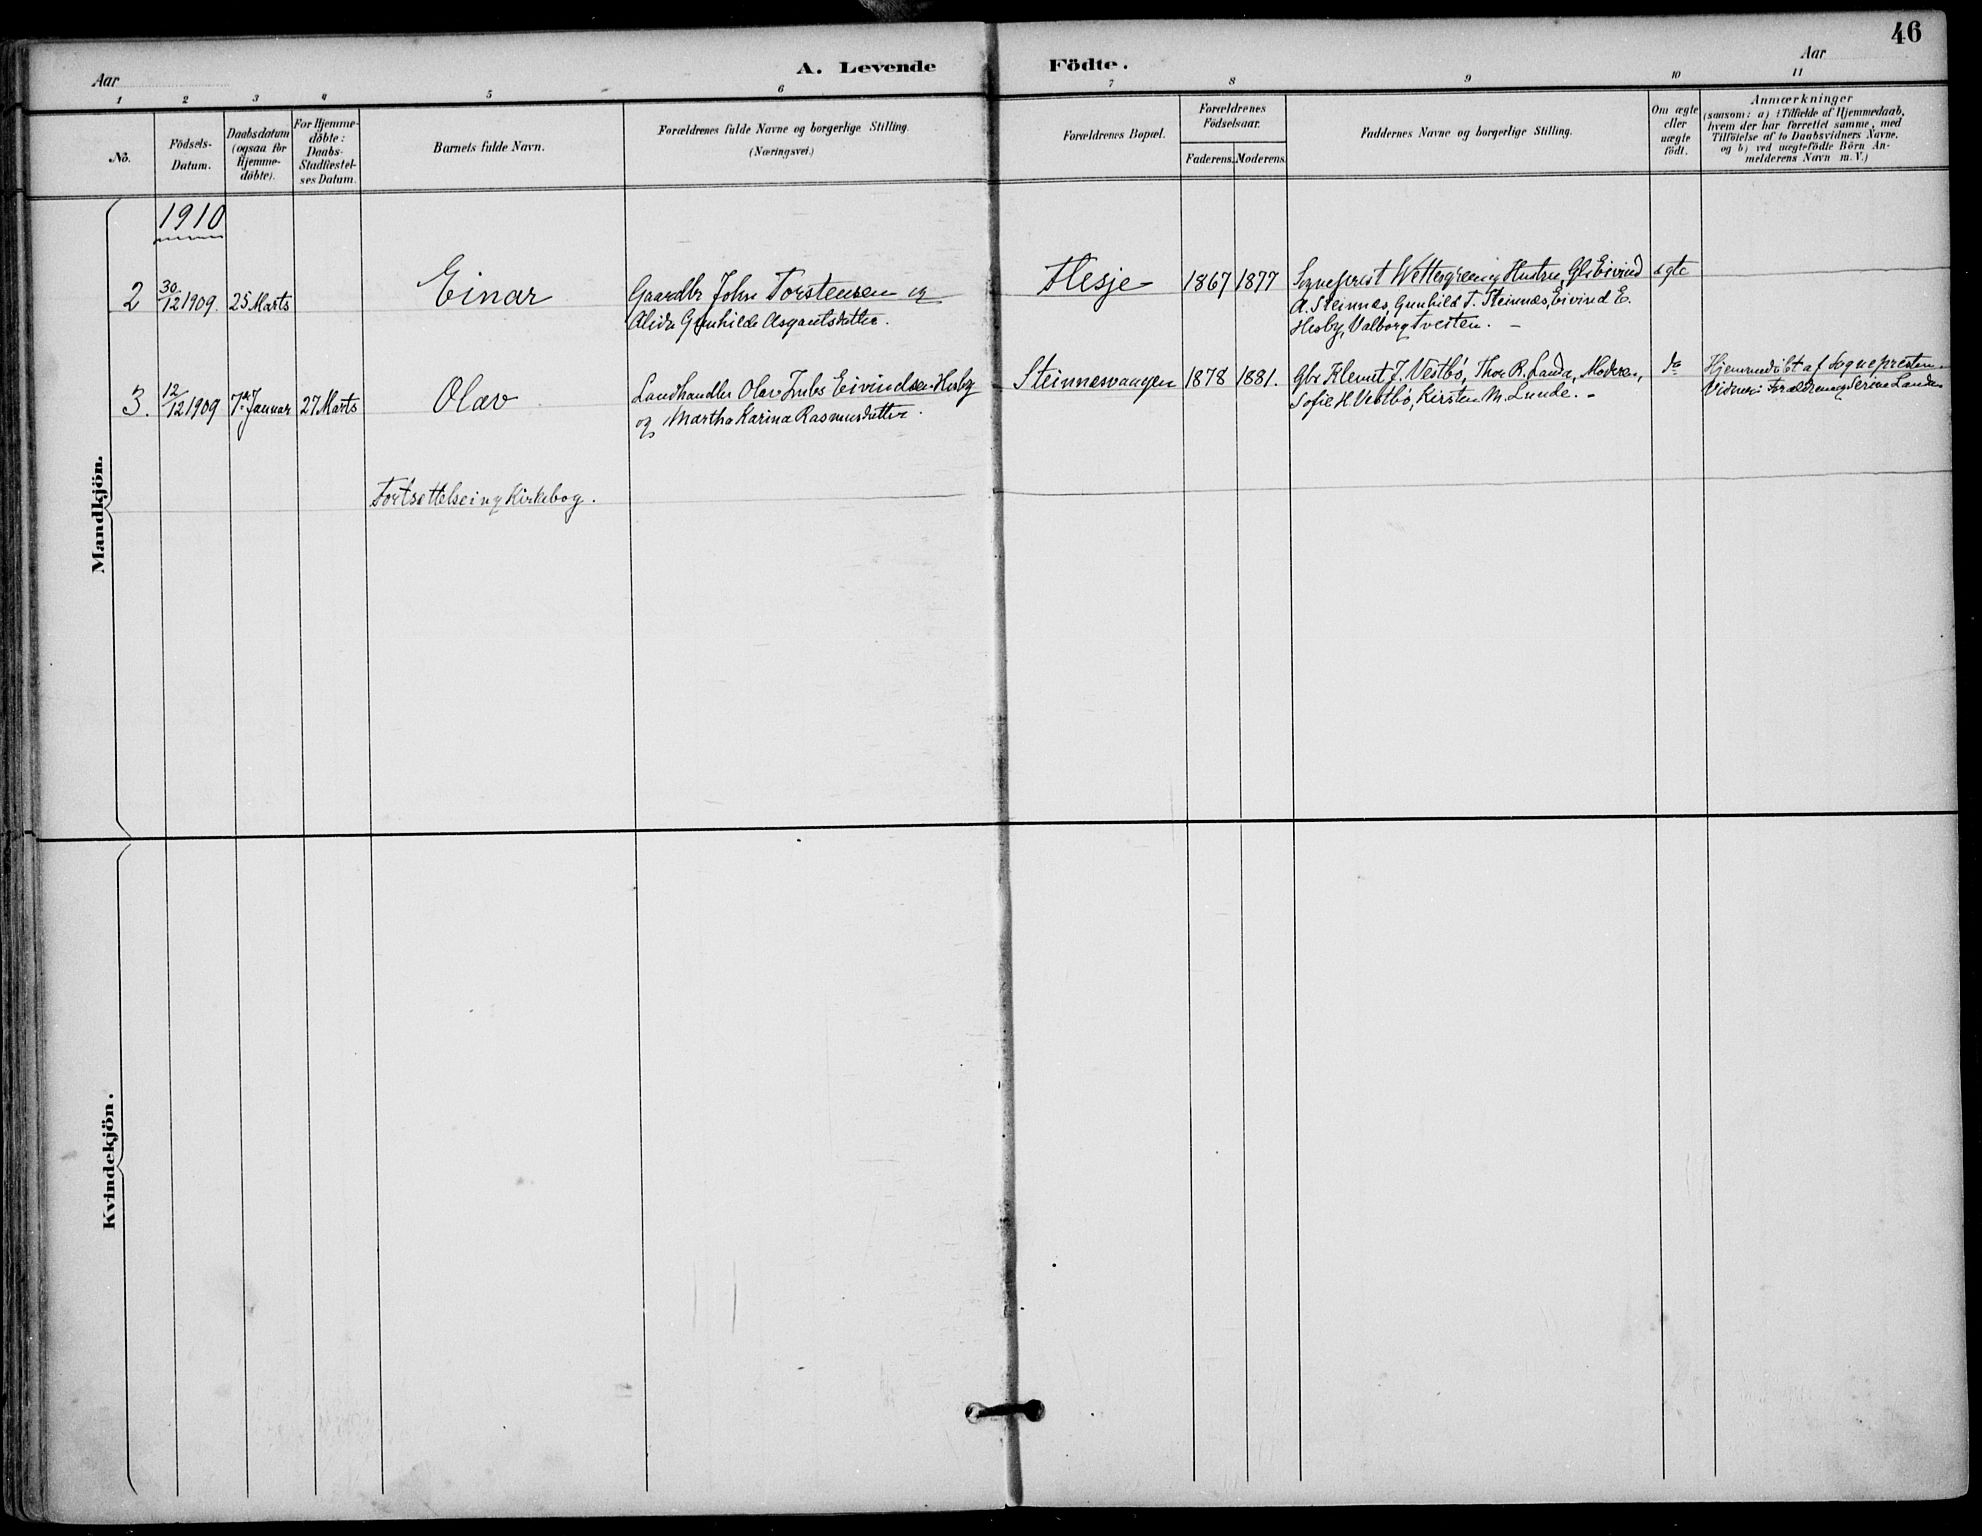 46
Aar
A. Levende Födte.
Aar
1 2 3 4 5 6 7 8 9 10 11
No.
Födsels-
Datum.
Daabsdatum
(ogsaa for
Hjemme-
döbte).
For Hjemme-
döbte:
Daabs-
Stadfæstel-
ses Datum.
Barnets fulde Navn.
Forældrenes fulde Navne og borgerlige Stilling.
(Næringsvei.)
Forældrenes Bopæl.
Forældrenes
Födselsaar.
Faderens. Moderens.
Faddernes Navne og borgerlige Stilling.
Om ægte
eller
uægte
födt.
Anmærkninger
(saasom: a) i Tilfælde af Hjemmedaab,
hvem der har forrettet samme, med
Tilföielse af to Daabsvidners Navne.
og b) ved uægtefödte Börn An-
melderens Navn m. V.)
Mandkjön.
1910
2 30/12 1909. 25 Marts Einar
Gaardbr John Torstensen og
Alida Gunhilde Asgautsdatter.
Hesje 1867 1877
Sogneprest Wettergreen og Hustru, Gbr Eivind
A. Steinnes, Gunhild T. Steinnes, Eivind E.
Hesby, Valborg Tveiten. –
ægte
3. 12/12 1909 7de Januar 27 Marts Olav
Landhandler Olav Eivindsen Hesby
og Martha Karina Rasmusdatter.
Steinnesvaagen 1878 1881.
Gbr Klemet J. Vestbö, Thor R. Landa, Moderen,
Sofie H Vestbö, Kirsten M. Lunde. –
do
Hjemmedöbt af Sognepresten.
Vidner: Forældrene og Serine Landa
Fortsettelse i ny Kirkebog.
Kvindekjön.